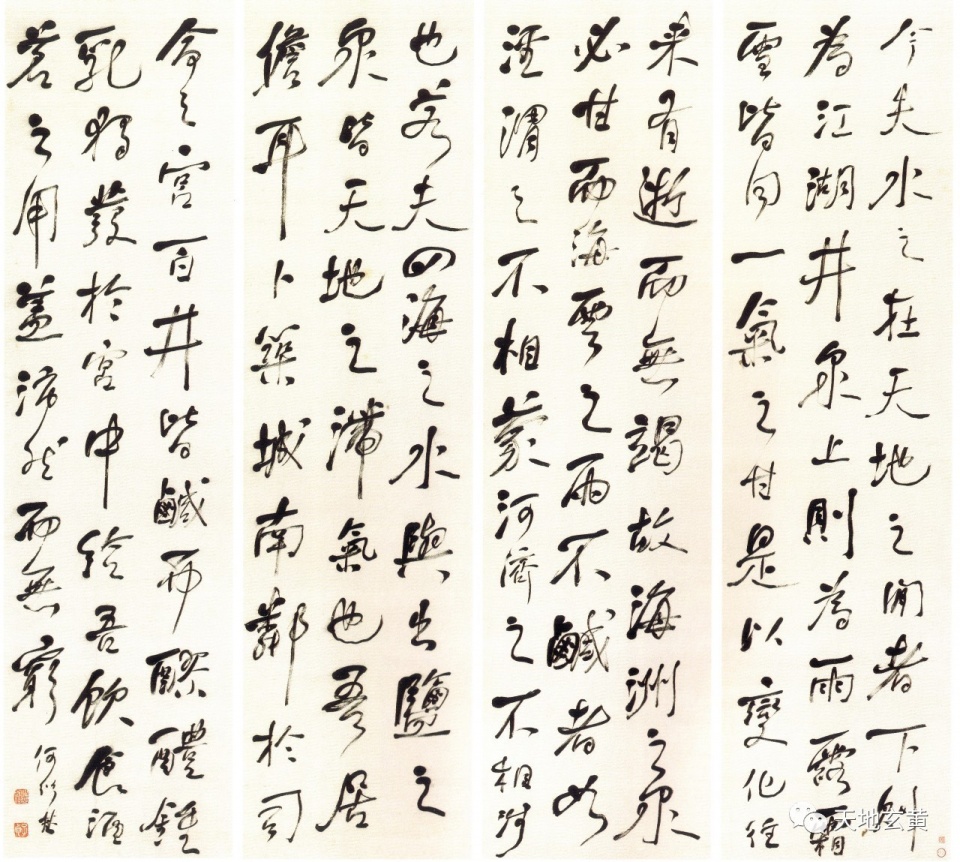 今夫水之在天地之間者下則
為江湖井泉上則為雨露霜
雪皆同一氣之甘是以變化往
來有逝而無竭故海洲之泉
必甘而海雲之雨不鹹者如
涇渭之不相蒙河濟之不相涉
也若夫四海之水與出鹽之
泉皆天地之滯氣也吾居
儋耳卜築城南鄰於司
命之宮百井皆鹹而醪醴湩
乳獨發於宮中給吾飲食酒
茗之用蓋沛然而無窮 何紹基
天地玄黄